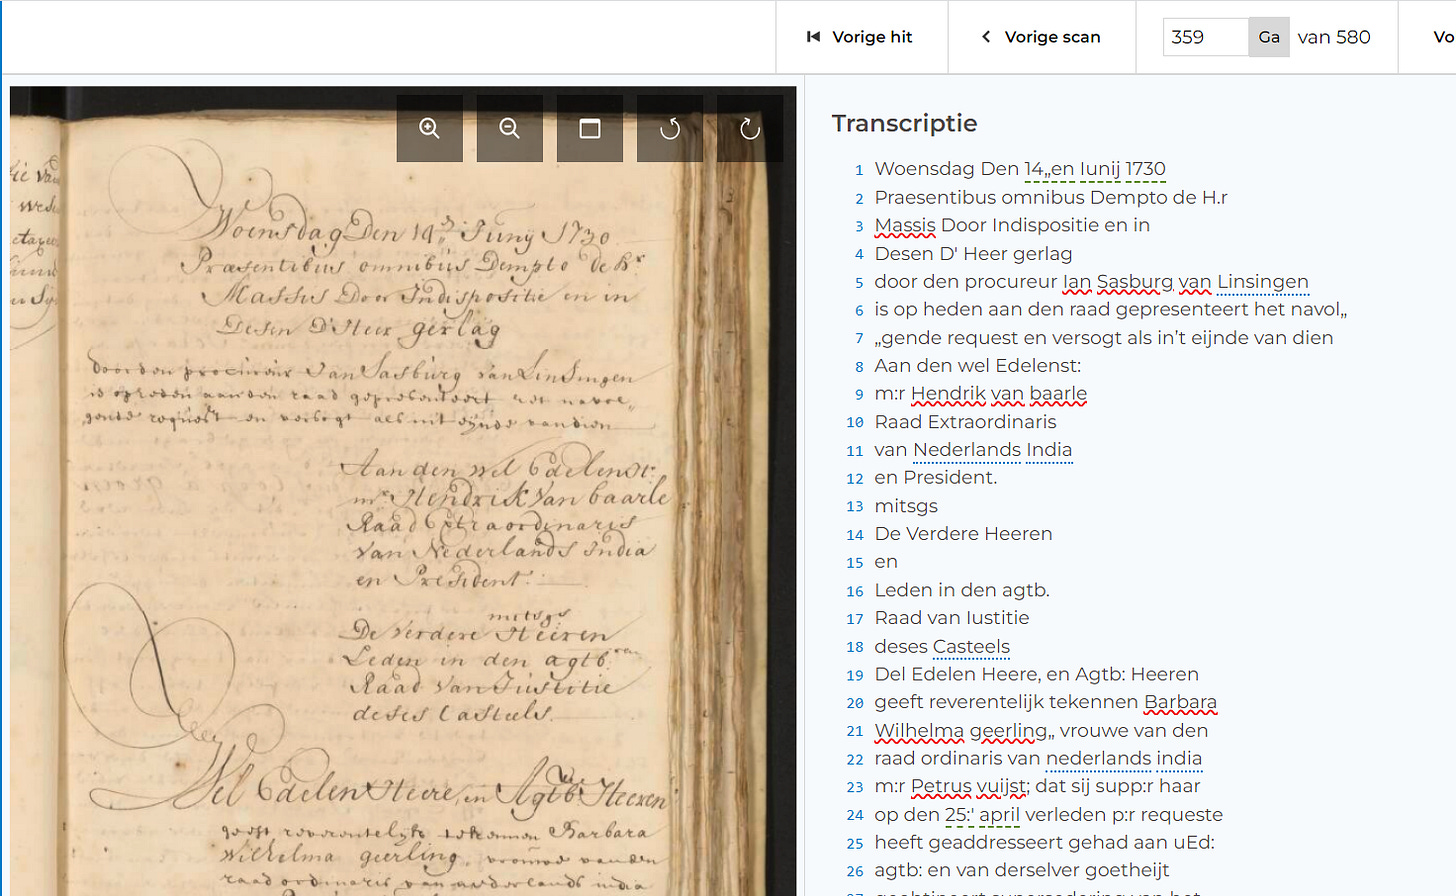 Vorige hit
Vorige scan
359
Ga
van 580
Vo
Woensdag Den 14„en Junij 1730
Praesentibus omnibus Dempto de Hr
Massis Door Indispositie en in
Desen D'Heer gerlag
door den procureur Jan Sasburg van Linsingen
is op heden aan den raad gepresenteert het navol„
„gende request en versogt als in't eijnde van dien
Aan den wel Edelenst:
mr Hendrik van baarle
Raad Extraordinaris
van Nederlands India
en President.
mitsgs
De Verdere Heeren
Leden in den agtb.
Raad van Justitie
deses Casteels.
Wel Edelen Heere, en Agtb: Heeren
geeft reverentelijk tekennen Barbara
Wilhelma geerling, vrouwe van den
raad ordinaris van nederlands india
Transcriptie
1 Woensdag Den 14„en Iunij 1730
2 Praesentibus omnibus Dempto de H.r
3 Massis Door Indispositie en in
4 Desen D' Heer gerlag
5 door den procureur Ian Sasburg van Linsingen
6 is op heden aan den raad gepresenteert het navol„
7 „gende request en versogt als in’t eijnde van dien
8 Aan den wel Edelenst:
9 m:r Hendrik van baarle
10 Raad Extraordinaris
11 van Nederlands India
12 en President.
13 mitsgs
14 De Verdere Heeren
15 en
16 Leden in den agtb.
17 Raad van Iustitie
18 deses Casteels
19 Del Edelen Heere, en Agtb: Heeren
20 geeft reverentelijk tekennen Barbara
21 Wilhelma geerling„ vrouwe van den
22 raad ordinaris van nederlands india
23 m:r Petrus vuijst; dat sij supp:r haar
24 op den 25:' april verleden p:r requeste
25 heeft geaddresseert gehad aan uEd:
26 agtb: en van derselver goetheijt